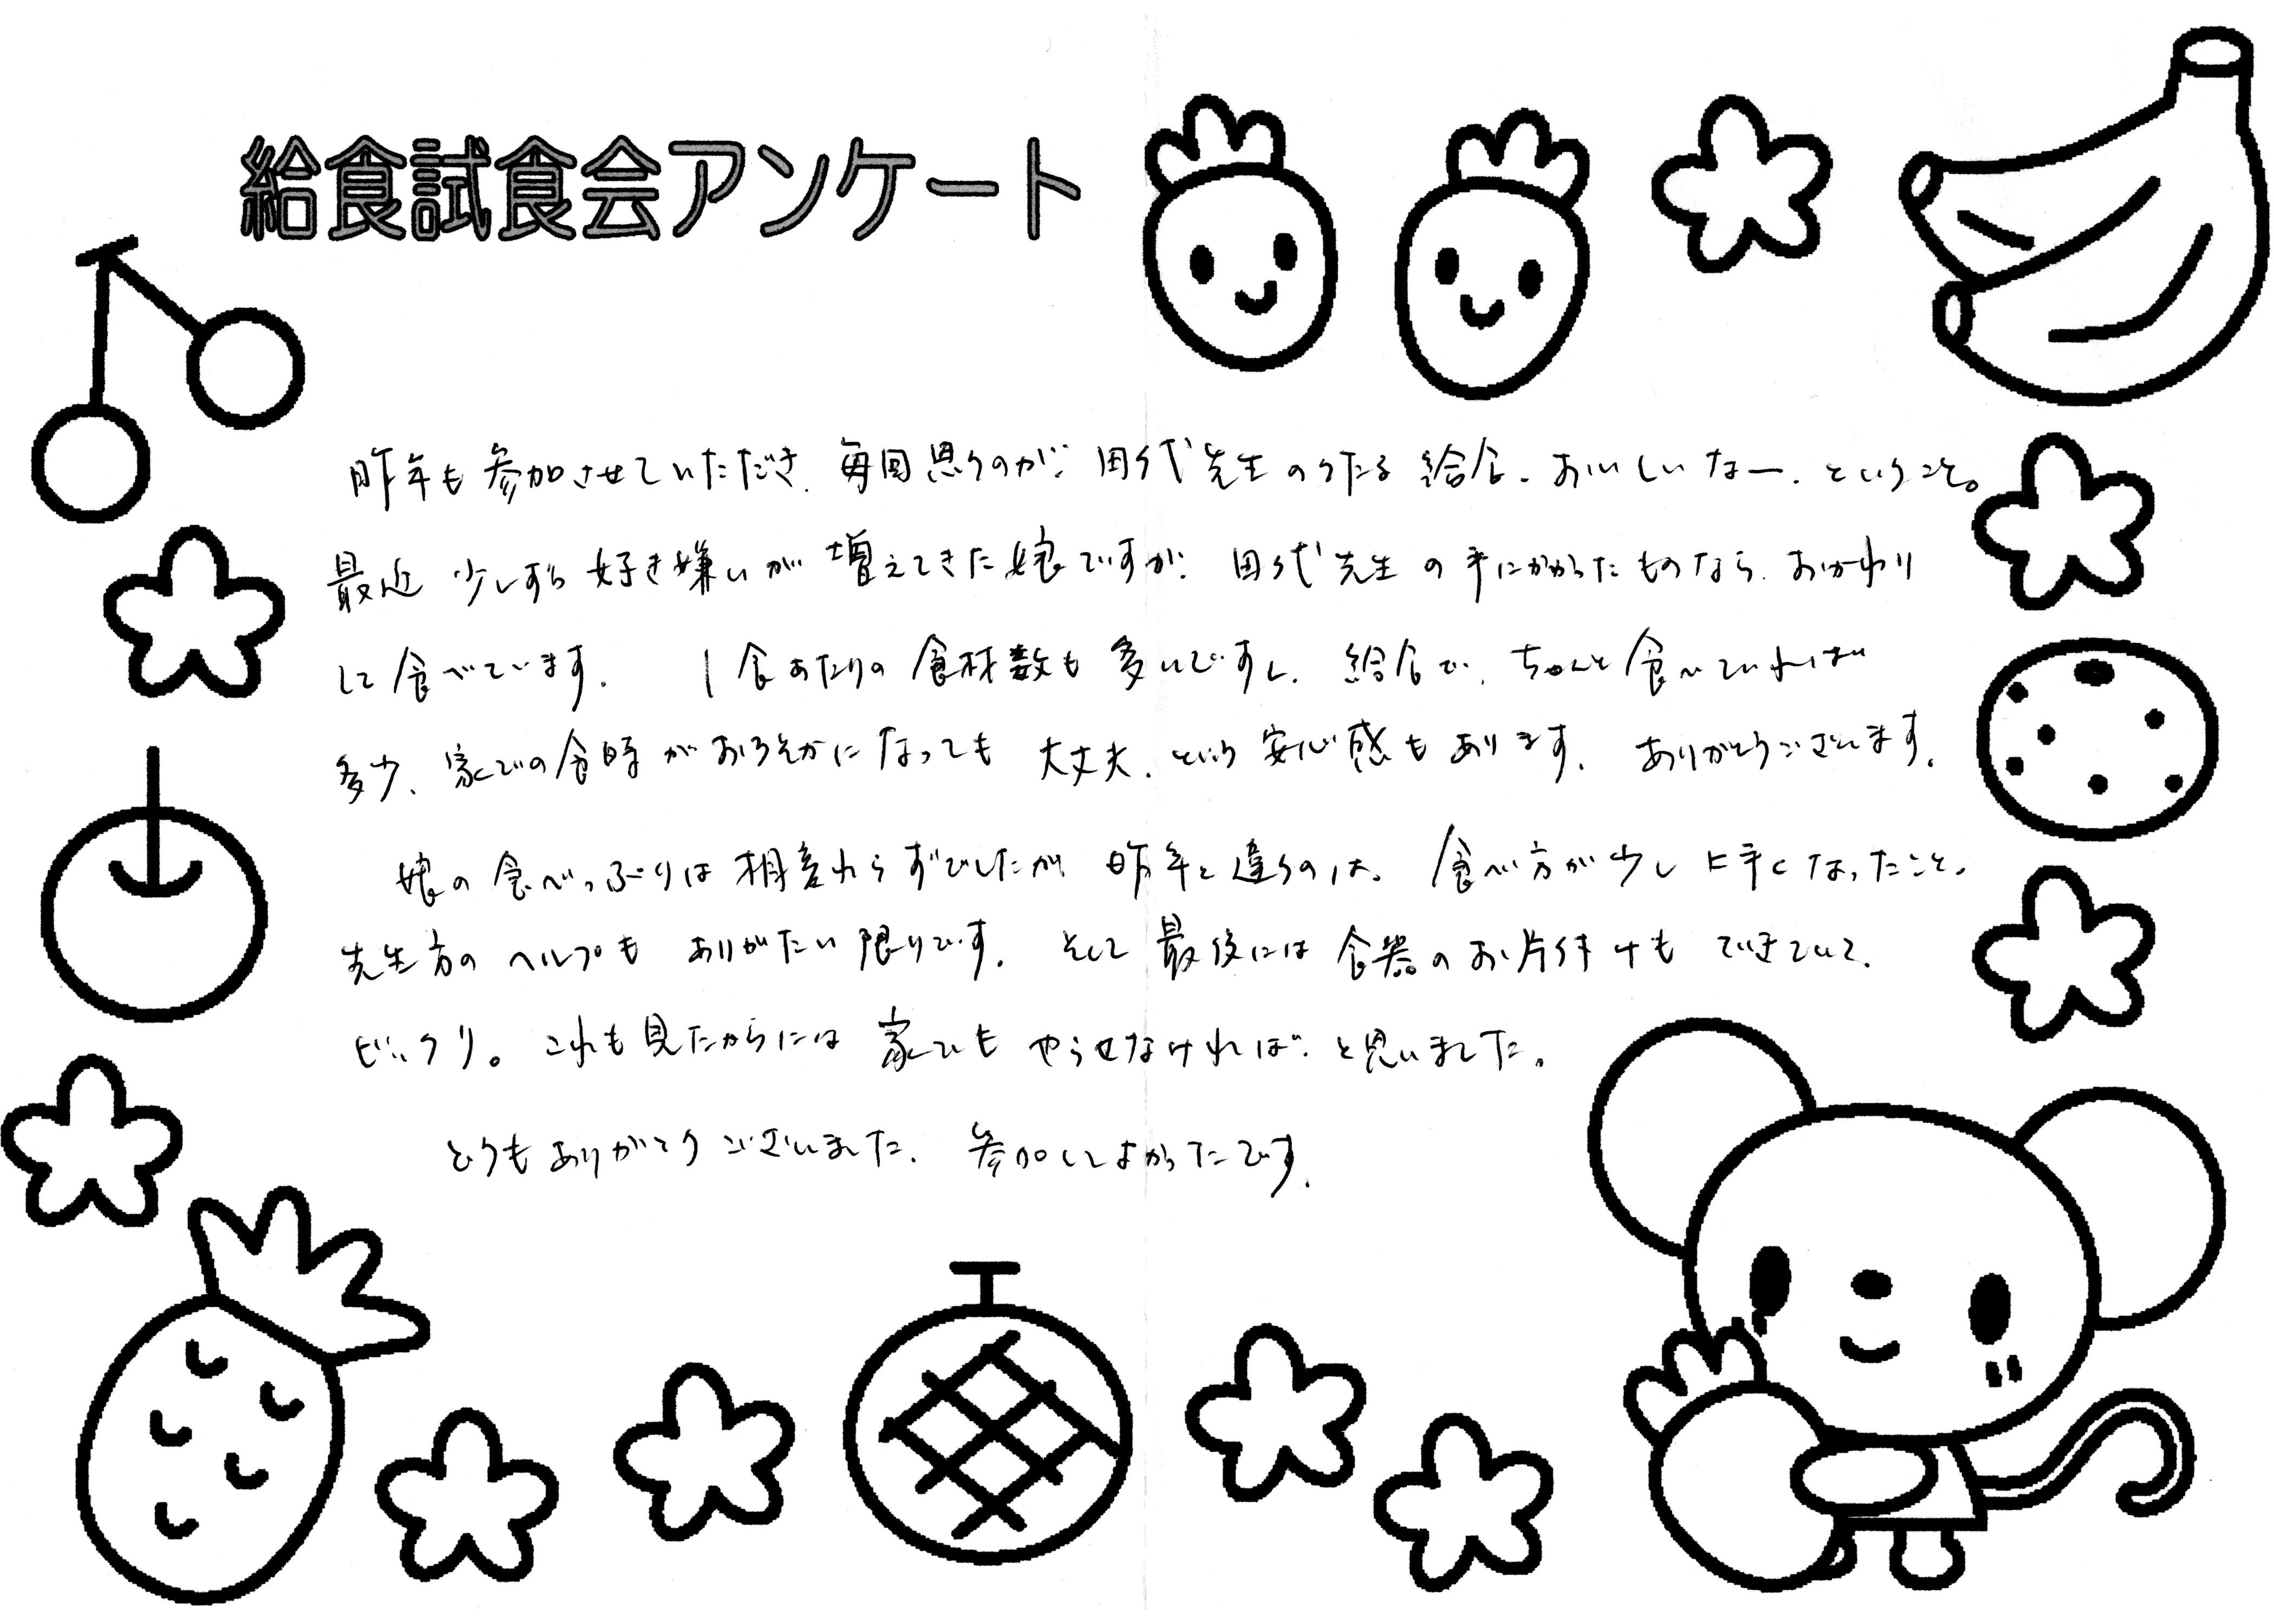 給食試食会アンケート
昨年も参加させていただき、毎回思うのが、田代先生のつくる給食、おいしいなー、ということ。
最近少しずつ好き嫌いが増えてきた娘ですが、田代先生の手にかかったものなら、おかわり
して食べています。 1食あたりの食材数も多いですし、給食で、ちゃんと食べていれば
多少、家での食事がおろそかになっても大丈夫、という安心感もあります。ありがとうございます。
娘の食べっぷりは相変わらずでしたが昨年と違うのは、食べ方が少し上手くなったこと。
先生方のヘルプもありがたい限りです。そして最後には食器のお片付けもできていて、
ビックリ。これも見たからには家でもやらせなければ、と思いました。
どうもありがとうございました。参加してよかったです。